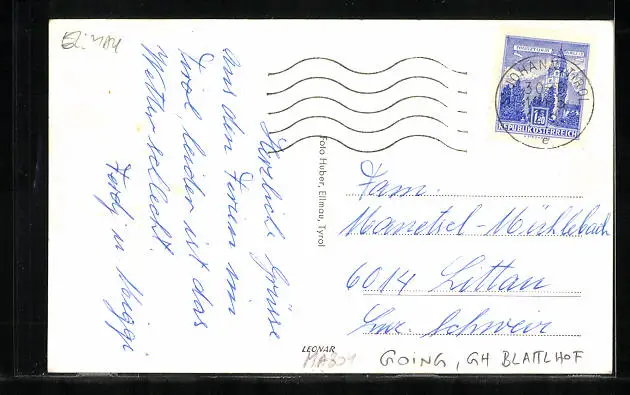 Ellmau
Herzliche Grüsse
aus den Ferien im
Tirol, leider ist das
Wetter schlecht.
Ferdy u. Miggi
Foto Huber, Ellmau, Tyrol
REPUBLIK ÖSTERREICH
Fam.
Manetsch-Mühlebach
6014 Littau
Luz. Schweiz
LEONAR
MA301
GOING, GH BLATTLHOF